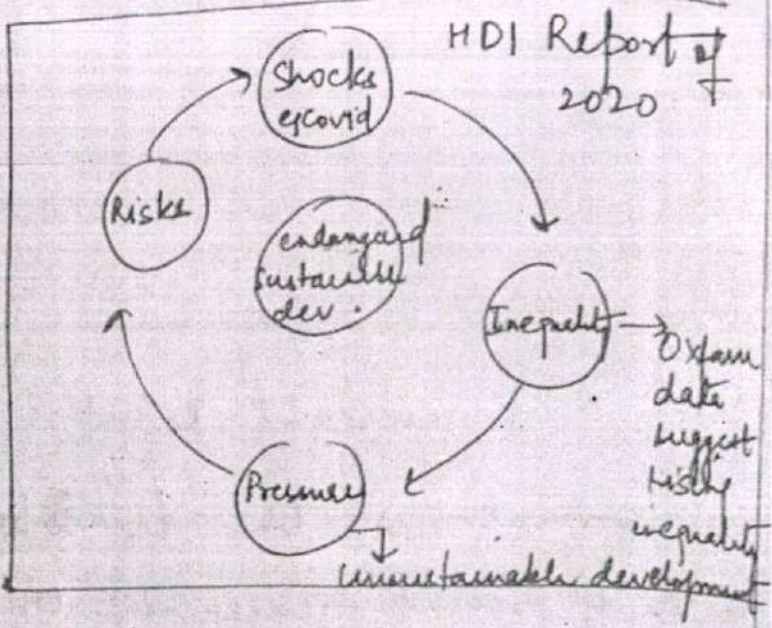 HDI Report of
2020
Shocks
eg Covid
Risks
endangered
sustainable
dev.
Inequality
Oxfam
data
suggest
rising
inequality
Pressure
unsustainable development